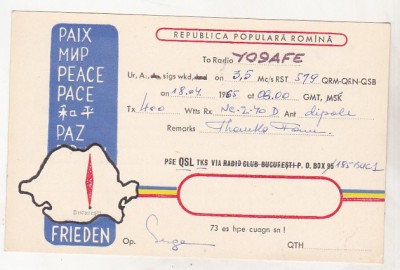 REPUBLICA POPULARĂ ROMÎNĂ
PAIX
МИР
PEACE
PACE
和平
PAZ
FRIEDEN
București
To Radio YO9AFE
Ur, A., sigs wkd, on 3,5 Mc/s RST 579 QRM-QRN-QSB
on 18.04. 1965 at 03.00 GMT, MSK
Tx 400 Wtts Rx Ant dipole
Remarks Thanks
PSE QSL TKS VIA RADIO CLUB BUCUREȘTI-P. O. BOX 95
73 es hpe cuagn sn !
Op. Serge QTH